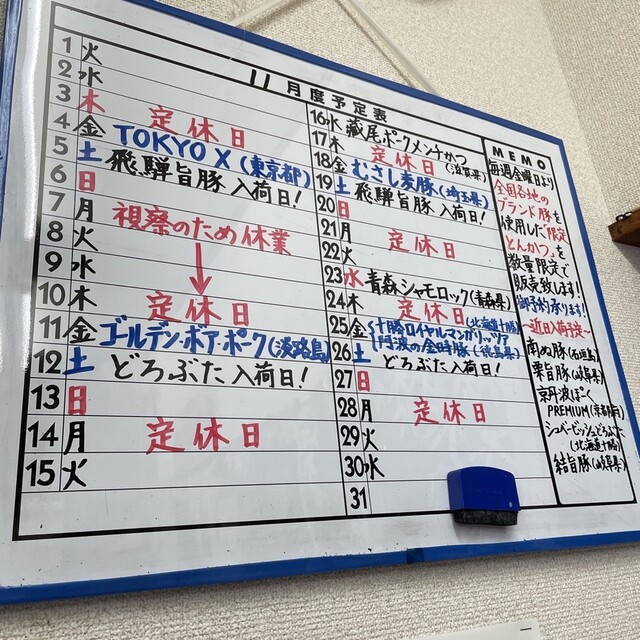 11月度予定表
1 火
2 水
3 木 定休日
4 金 TOKYO X (東京都)
5 土 飛騨旨豚 入荷日!
6 日
7 月 視察のため休業
8 火
9 水
10 木 定休日
11 金 ゴールデン・ボア・ポーク(淡路島)
12 土 どろぶた 入荷日!
13 日
14 月 定休日
15 火
16 水 蔵尾ポークメンチかつ
17 木 定休日 (滋賀県)
18 金 むさし麦豚(埼玉県)
19 土 飛騨旨豚 入荷日!
20 日
21 月 定休日
22 火
23 水 青森シャモロック(青森県)
24 木 定休日
25 金 十勝ロイヤルマンガリッツァ (北海道十勝)
丹波の金時豚
26 土 どろぶた 入荷日!
27 日
28 月 定休日
29 火
30 水
31
MEMO
毎週金曜日より
全国各地の
ブランド豚を
使用した「限定
とんかつ」を
数量限定で
販売致します!
御予約承ります!
~近日入荷予定~
南ぬ豚(石垣島)
栗旨豚(岐阜県)
京丹波ぽーく
PREMIUM(京都府)
シュベービッシュどろぶた
(北海道十勝)
結旨豚(岐阜県)